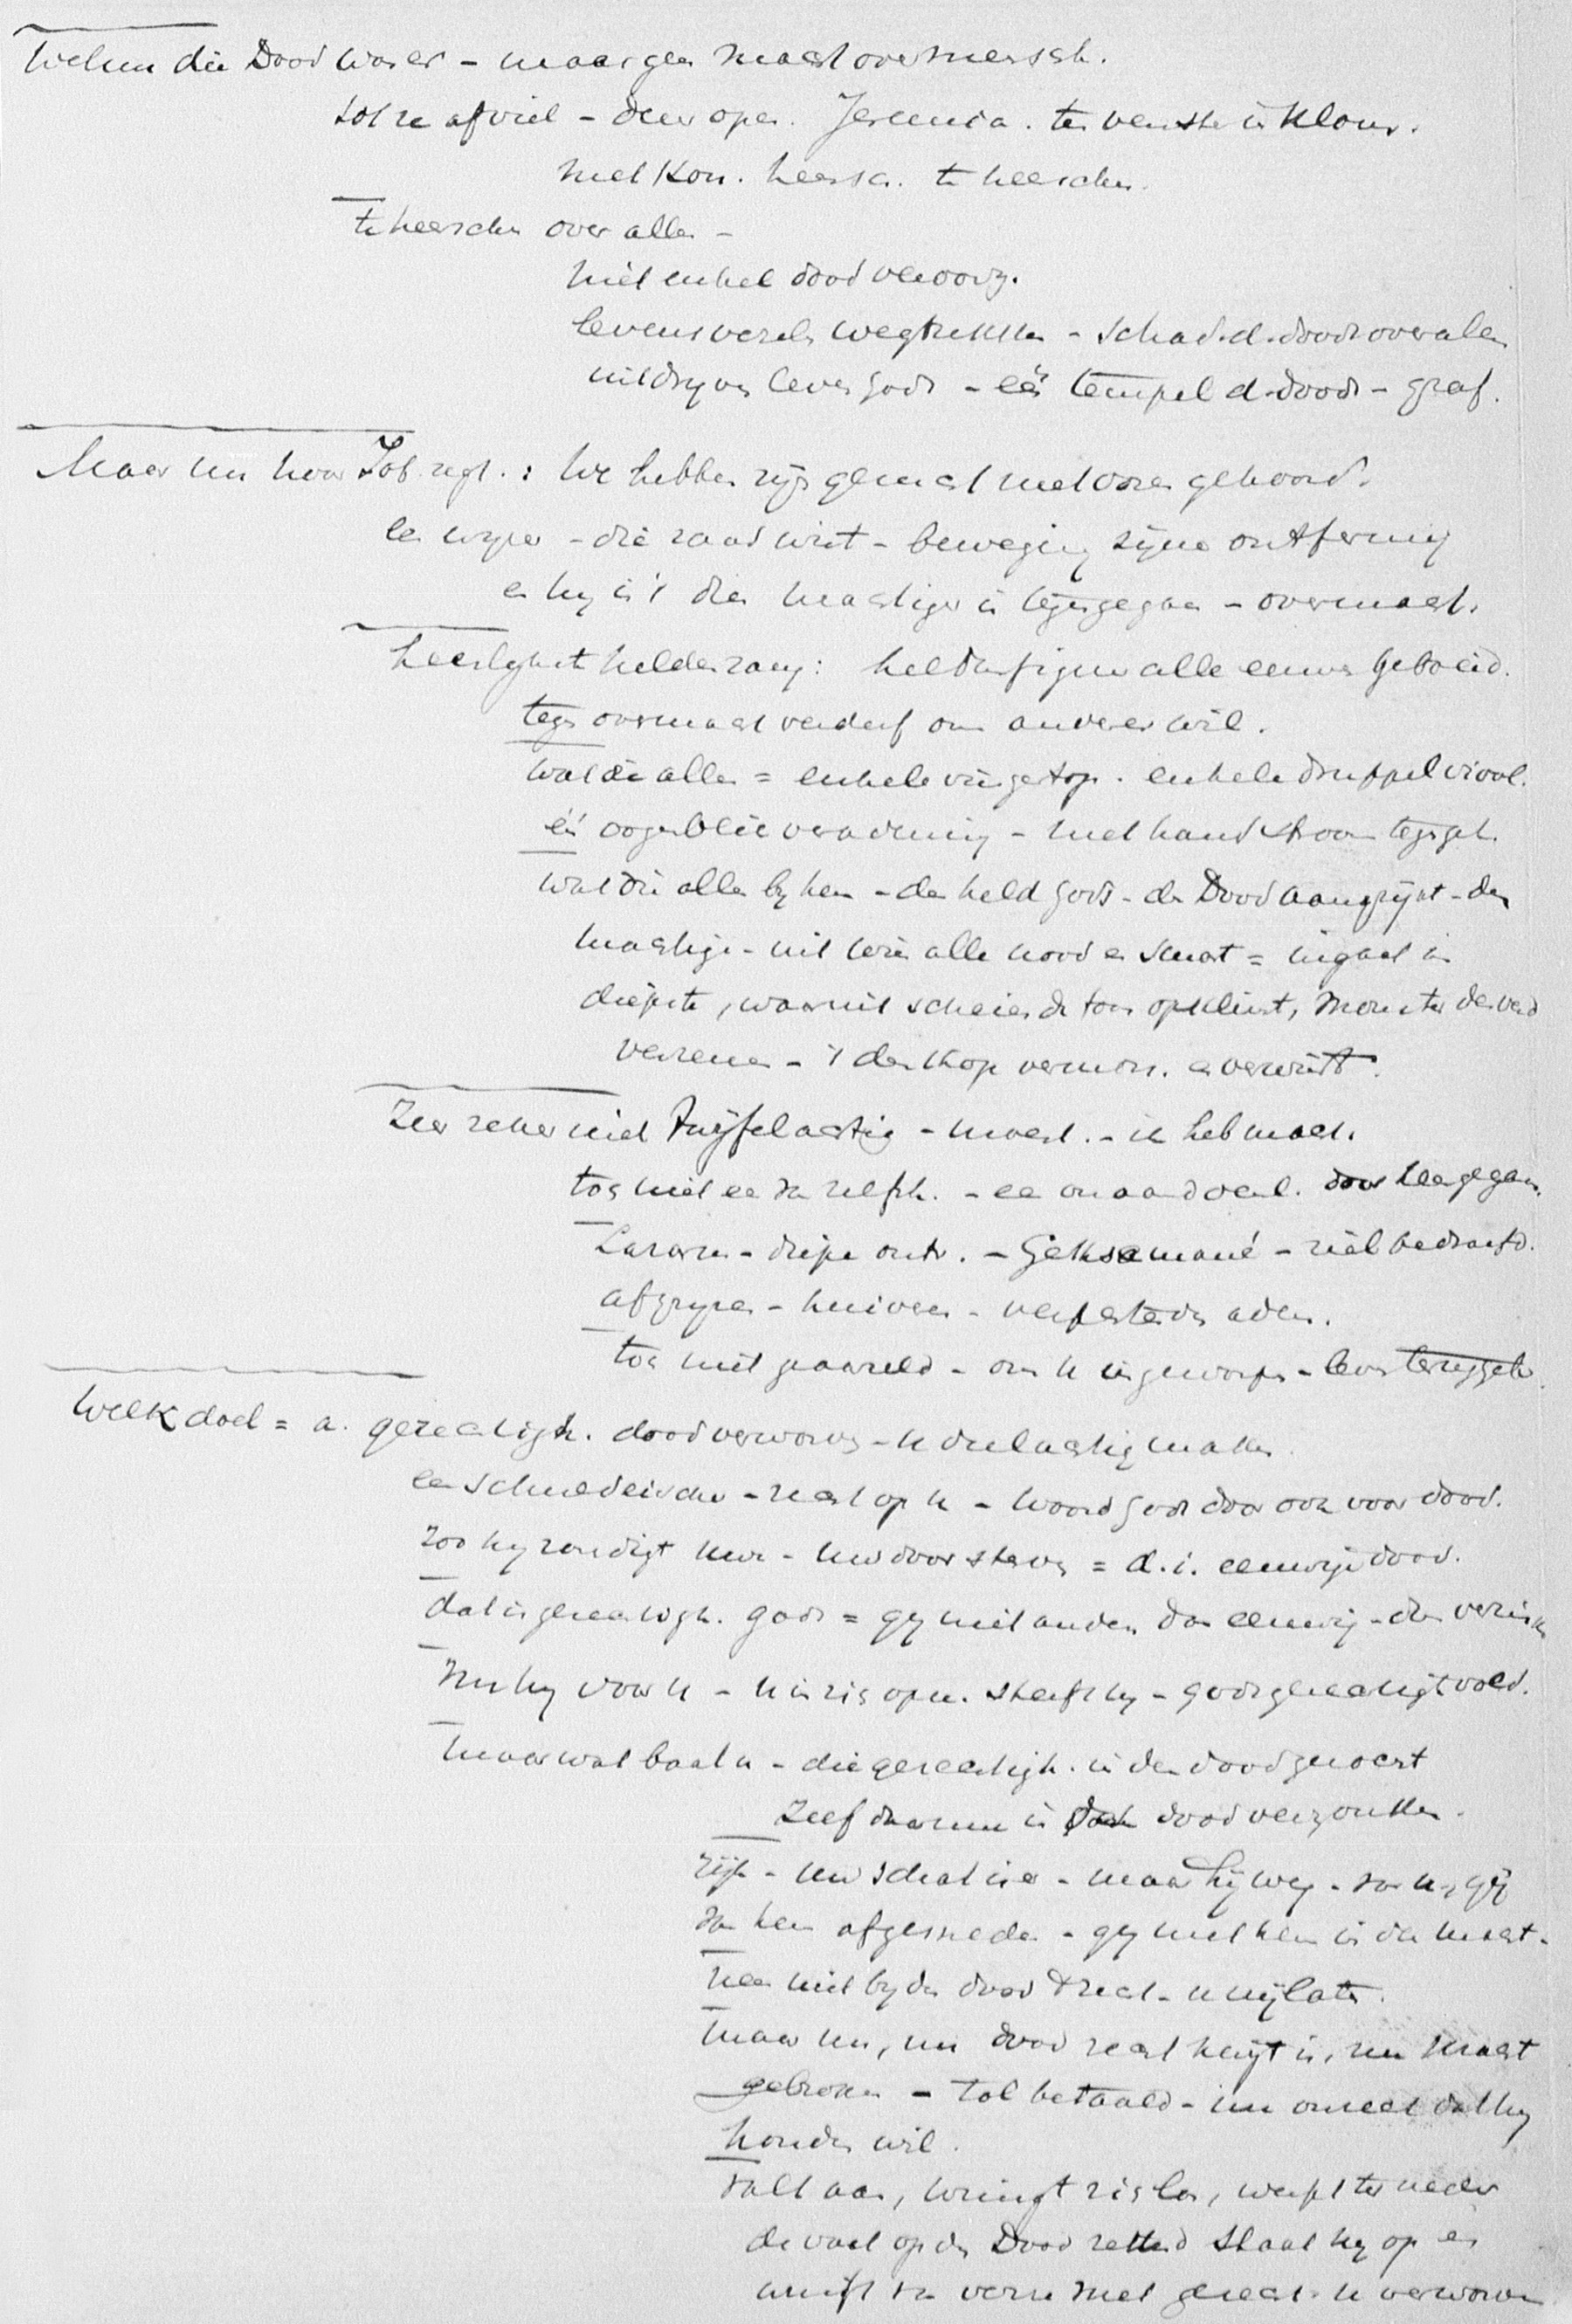 Welnu die Dood was er - maar geen macht over mensch.
tot ze afviel - deur open. Jeremia. ten venster in klom.
met Kon. heersch. te heerschen.
te heerschen over allen -
niet enkel dood veroorz.
levensvezels wegtrekken - schad. d. doods over alen
uitdryven leven Gods - één tempel d. doods - graf.
Maar nu hoor Job zegt.: We hebben zyn gerucht met ooren gehoord.
en wyzer - die raad wist - beweging zijner ontferming
en hy is 't dien machtigen in tegengegaan - overmacht.
Heerlykste heldenzang: heldenfiguur alle eeuwen geboeid.
tegen overmacht verderf om anderer wil.
wat die allen = enkele vingertop. enkele druppel viool.
één oogenblik verademing - met hand stroom tegengeh.
wat die allen by hem - den held Gods - den Dood aangrijpt - den
machtige - uit wien alle nood en smart = ingaat in
diepste, waaruit scheiende toon opklinkt, monster der
- 't den kop vermors. en verwint.
Zeer zeker niet twijfelachtig - macht. - ik heb macht.
toch niet en dan zelfzh. - en onaandoenl. door heengegaan.
Lazarus - diepe ontr. - Gethsemané - ziel bedroefd.
afgryzen - huiveren - verpestenden adem.
toch niet geaarzeld - om u ingeworpen - leven teruggeb.
Welk doel = a. gerechtigh. dood verworven - u deelachtig maken
een schuldeischer - recht op u - woord Gods door ook voor dood.
zoo hy zondigt uwe - uw door sterven = d.i. eeuwige dood.
dat is gerechtigh. Gods = gy niet anders dan eeuwig - den
Nu hy voor u - u in zich opn. sterft hy - Gods gerechtigt vold.
maar wat baat u - die gerechtigh. in den dood gerocht
Zelf daarmee in dood verzonken.
Zijn - uw schat is er - maar hij weg - dan u, gij
dan hem afgesneden - gy met hem in den macht.
neen niet by den dood recht - u vrijlaten.
maar nu, nu dood recht kwyt is, nu kracht
gebroken - tol betaald - nu onrecht dat hy
houden wil.
valt aan, wringt zich los, werpt ter neder
de voet op den Dood zettend staat hy op en
met gerecht. u verworven